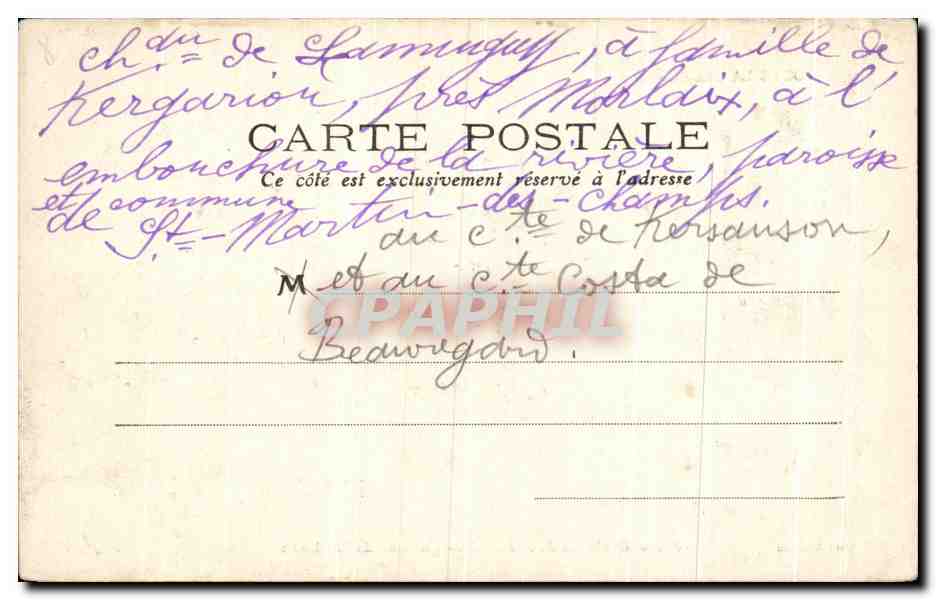 ch.au de Lannuguy, à famille de
Kergariou, près Morlaix, à l'
CARTE POSTALE
embouchure de la rivière, paroisse
Ce côté est exclusivement réservé à l'adresse
et commune
de St.-Martin-des-champs.
du c.te de Kersauson,
M et du c.te Costa de
CPAPHIL
Beauregard.